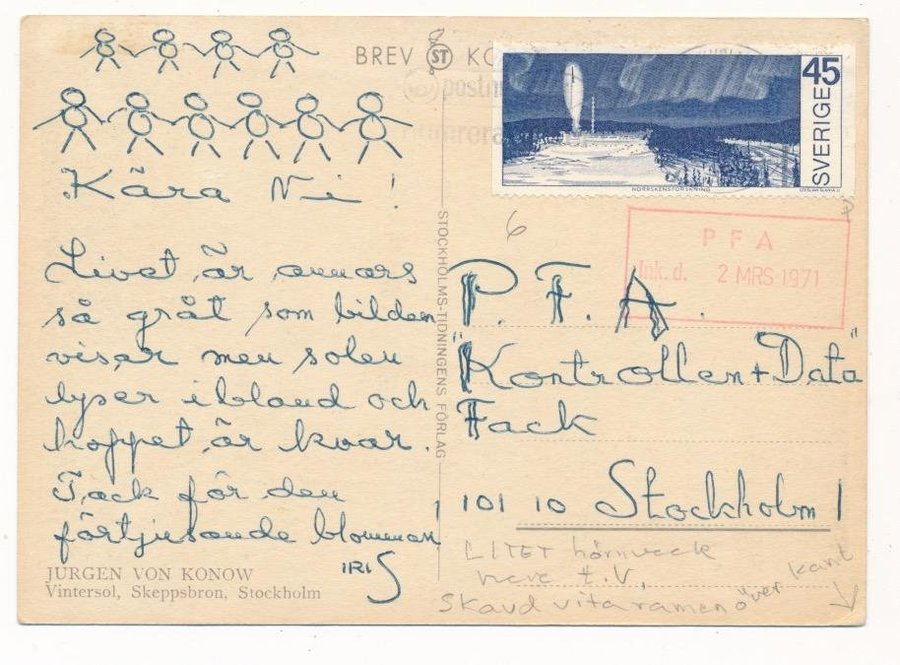 BREV ST KO
postn
45
SVERIGE
NORRSKENSFORSKNING
6
Kära Ni!
Livet är annars
så gråt som bilden
visar men solen
lyser ibland och
hoppet är kvar.
Tack för den
förtjusande blomman
IRIS
JURGEN VON KONOW
Vintersol, Skeppsbron, Stockholm
STOCKHOLMS-TIDNINGENS FÖRLAG
PFA
Ink. d. 2 MRS 1971
P. F. A.
"Kontrollen + Data"
Fack
101 10 Stockholm 1
LITET hörnveck
nere t.v.
Skavd vita ramen över kant